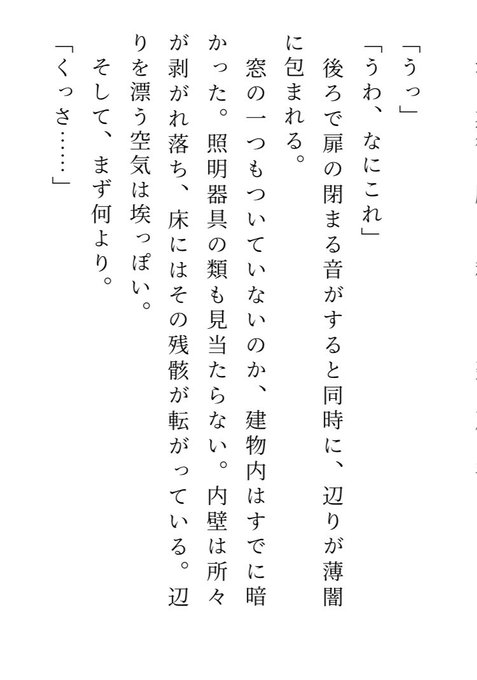 「うっ」
「うわ、なにこれ」
　後ろで扉の閉まる音がすると同時に、辺りが薄闇
に包まれる。
　窓の一つもついていないのか、建物内はすでに暗
かった。照明器具の類も見当たらない。内壁は所々
が剥がれ落ち、床にはその残骸が転がっている。辺
りを漂う空気は埃っぽい。
　そして、まず何より。
「くっさ……」